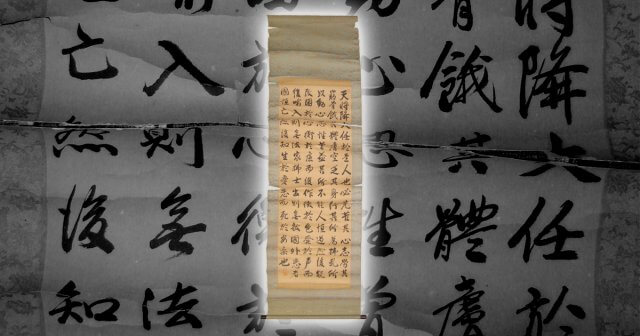 天將降大任於是人也必先苦其心志勞其
筋骨餓其體膚空乏其身行拂亂其所為所
以動心忍性曾益其所不能人恒過然後能
改困於心衡於慮而後作徵於色發於聲而
後喻入則無法家拂士出則無敵國外患者
國恒亡然後知生於憂患而死於安樂也
將降大任於
骨餓其體膚
心忍性曾
於心衡於
入則無法
亡然後知